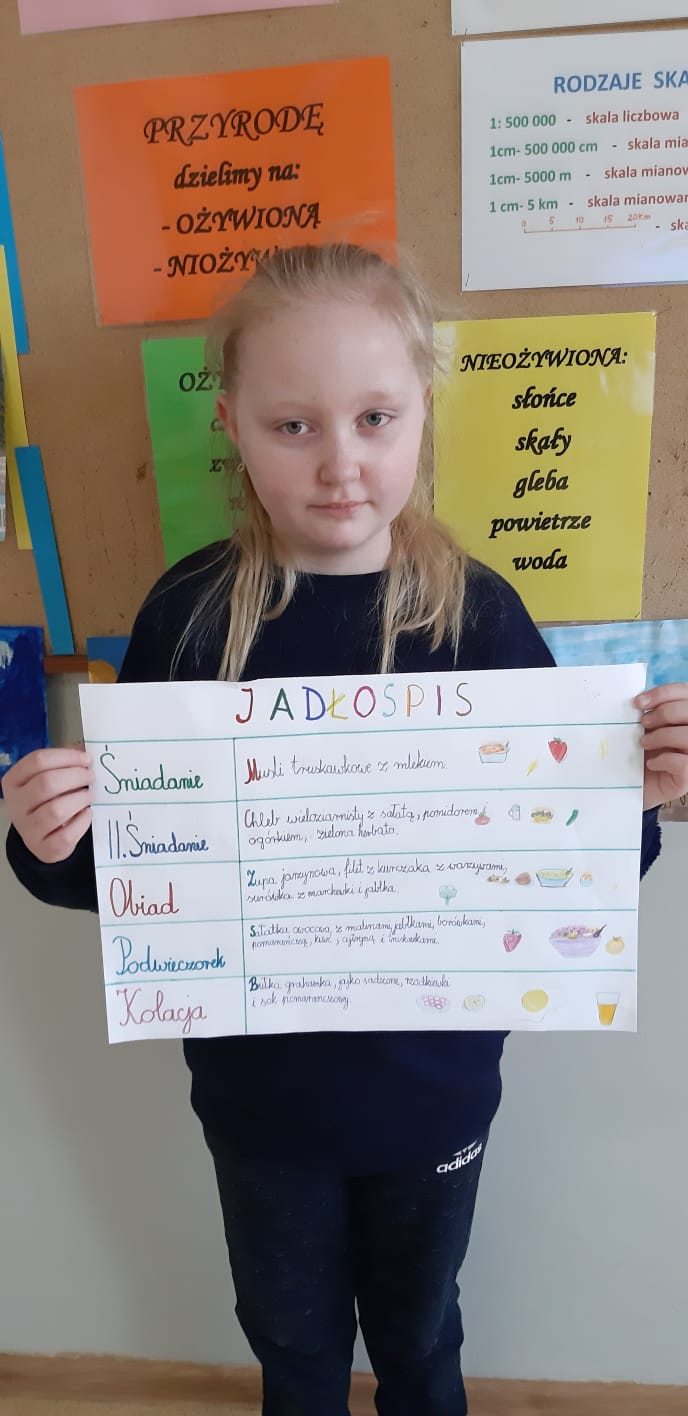 PRZYRODĘ
dzielimy na:
- OŻYWIONĄ
- NIOŻYW
RODZAJE SKA
1: 500 000 - skala liczbowa
1cm- 500 000 cm - skala mia
1cm- 5000 m - skala mianow
1 cm- 5 km - skala mianowan
0 5 10 15 20km - ska
OŻ
NIEOŻYWIONA:
słońce
skały
gleba
powietrze
woda
JADŁOSPIS
Śniadanie
Musli truskawkowe z mlekiem.
II. Śniadanie
Chleb wieloziarnisty z sałatą, pomidorem,
ogórkiem, zielona herbata.
Obiad
Zupa jarzynowa, filet z kurczaka z warzywami,
surówka z marchewki i jabłka.
Podwieczorek
Sałatka owocowa, z malinami, jabłkami, borówkami,
pomarańczą, kiwi, cytryną i truskawkami.
Kolacja
Bułka grahamka, jajko sadzone, rzodkiewki
i sok pomarańczowy.
adidas